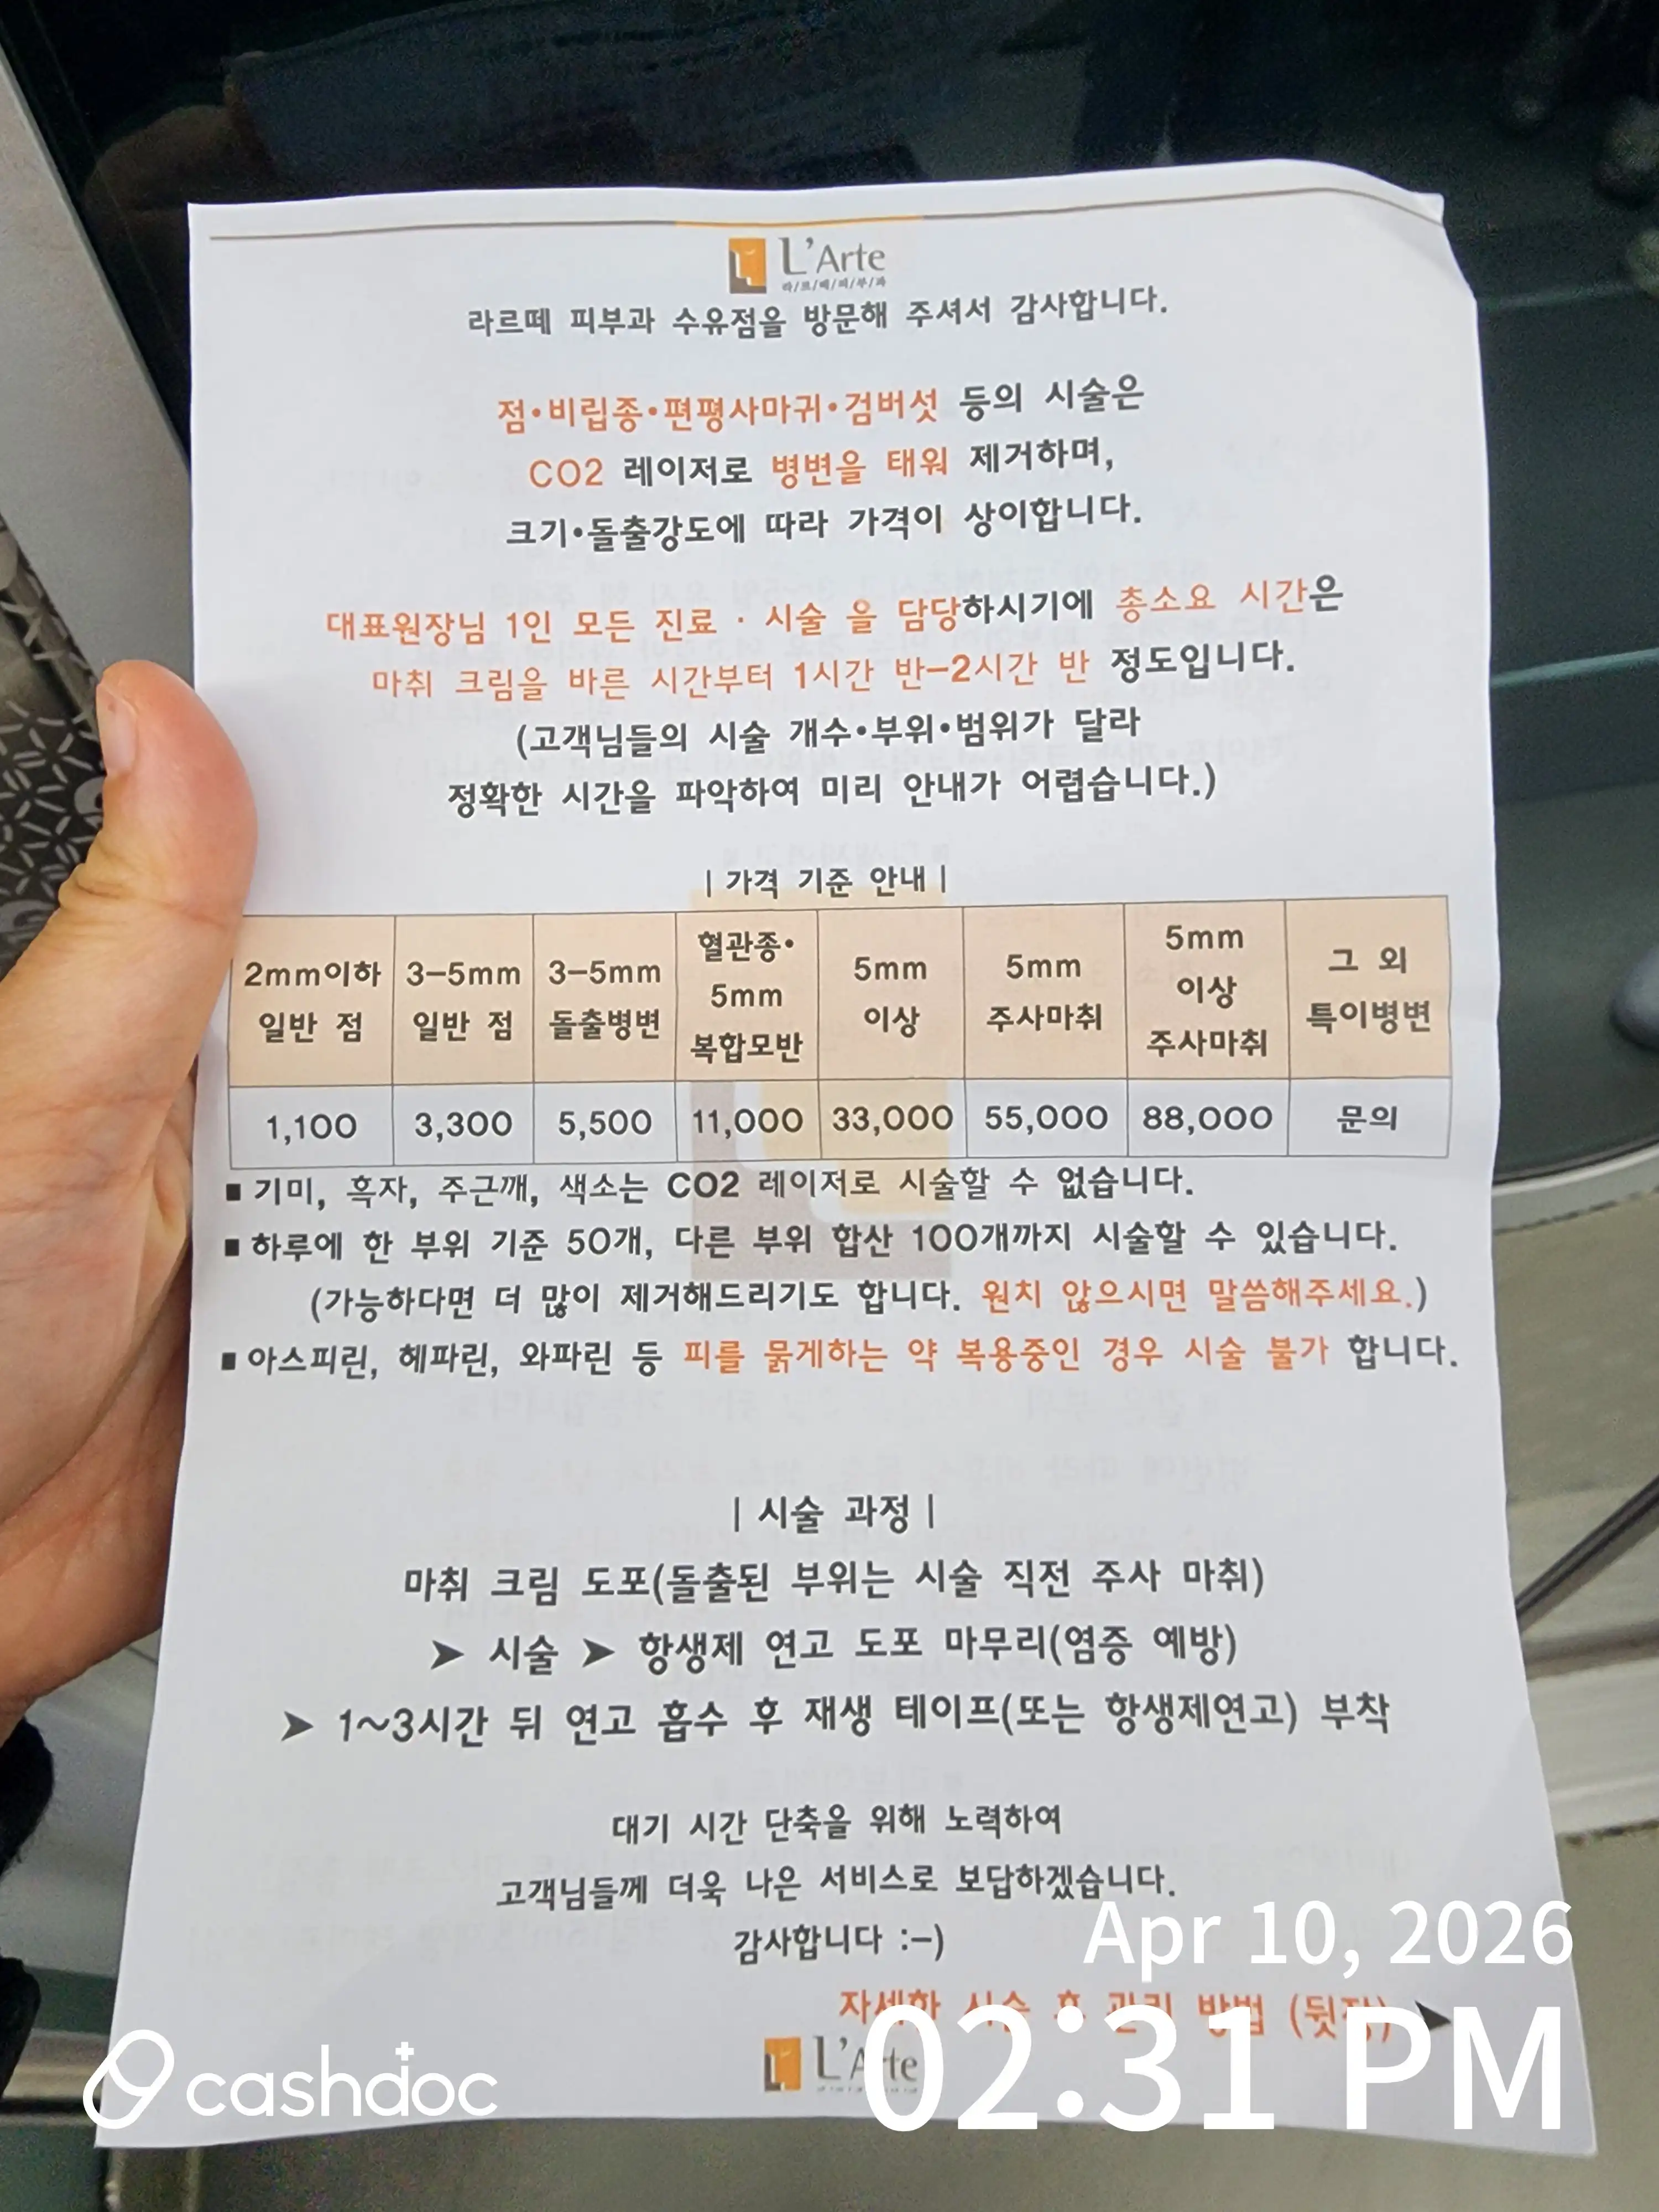 L'Arte
라/르/떼/피/부/과
라르떼 피부과 수유점을 방문해 주셔서 감사합니다.
점•비립종•편평사마귀•검버섯 등의 시술은
CO2 레이저로 병변을 태워 제거하며,
크기•돌출강도에 따라 가격이 상이합니다.
대표원장님 1인 모든 진료 · 시술 을 담당하시기에 총소요 시간은
마취 크림을 바른 시간부터 1시간 반-2시간 반 정도입니다.
(고객님들의 시술 개수•부위•범위가 달라
정확한 시간을 파악하여 미리 안내가 어렵습니다.)
| 가격 기준 안내 |
2mm이하 일반 점 3-5mm 일반 점 3-5mm 돌출병변 혈관종• 5mm 복합모반 5mm 이상 5mm 주사마취 5mm 이상 주사마취 그 외 특이병변
1,100 3,300 5,500 11,000 33,000 55,000 88,000 문의
■ 기미, 흑자, 주근깨, 색소는 CO2 레이저로 시술할 수 없습니다.
■ 하루에 한 부위 기준 50개, 다른 부위 합산 100개까지 시술할 수 있습니다.
(가능하다면 더 많이 제거해드리기도 합니다. 원치 않으시면 말씀해주세요.)
■ 아스피린, 헤파린, 와파린 등 피를 묽게하는 약 복용중인 경우 시술 불가 합니다.
| 시술 과정 |
마취 크림 도포(돌출된 부위는 시술 직전 주사 마취)
➤ 시술 ➤ 항생제 연고 도포 마무리(염증 예방)
➤ 1~3시간 뒤 연고 흡수 후 재생 테이프(또는 항생제연고) 부착
대기 시간 단축을 위해 노력하여
고객님들께 더욱 나은 서비스로 보답하겠습니다.
감사합니다 :-)
자세한 시술 후 관리 방법 (뒷장) ➤
L'Arte
Apr 10, 2026
02:31 PM
cashdoc